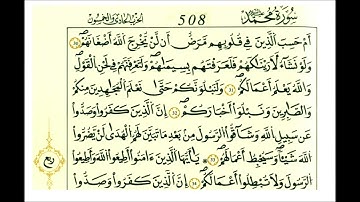 سُورَةُ مُحَمَّد ﷺ 508 الحزب الحادي والخمسون
أَمْ حَسِبَ ٱلَّذِينَ فِى قُلُوبِهِم مَّرَضٌ أَن لَّنْ يُّخْرِجَ ٱللَّهُ أَضْغَٰنَهُمْ ٣٠
وَلَوْ نَشَآءُ لَأَرَيْنَٰكَهُمْ فَلَعَرَفْتَهُم بِسِيمَٰهُمْ وَلَتَعْرِفَنَّهُمْ فِى لَحْنِ ٱلْقَوْلِ
وَٱللَّهُ يَعْلَمُ أَعْمَٰلَكُمْ ٣١ وَلَنَبْلُوَنَّكُمْ حَتَّىٰ نَعْلَمَ ٱلْمُجَٰهِدِينَ مِنكُمْ
وَٱلصَّٰبِرِينَ وَنَبْلُوَا۟ أَخْبَارَكُمْ ٣٢ إِنَّ ٱلَّذِينَ كَفَرُوا۟ وَصَدُّوا۟
عَن سَبِيلِ ٱللَّهِ وَشَآقُّوا۟ ٱلرَّسُولَ مِنۢ بَعْدِ مَا تَبَيَّنَ لَهُمُ ٱلْهُدَىٰ لَنْ يَّضُرُّوا۟
ٱللَّهَ شَيْـًٔا وَسَيُحْبِطُ أَعْمَٰلَهُمْ ٣٣ يَٰٓأَيُّهَا ٱلَّذِينَ ءَامَنُوٓا۟ أَطِيعُوا۟ ٱللَّهَ وَأَطِيعُوا۟
ٱلرَّسُولَ وَلَا تُبْطِلُوٓا۟ أَعْمَٰلَكُمْ ٣٤ إِنَّ ٱلَّذِينَ كَفَرُوا۟ وَصَدُّوا۟
ربع